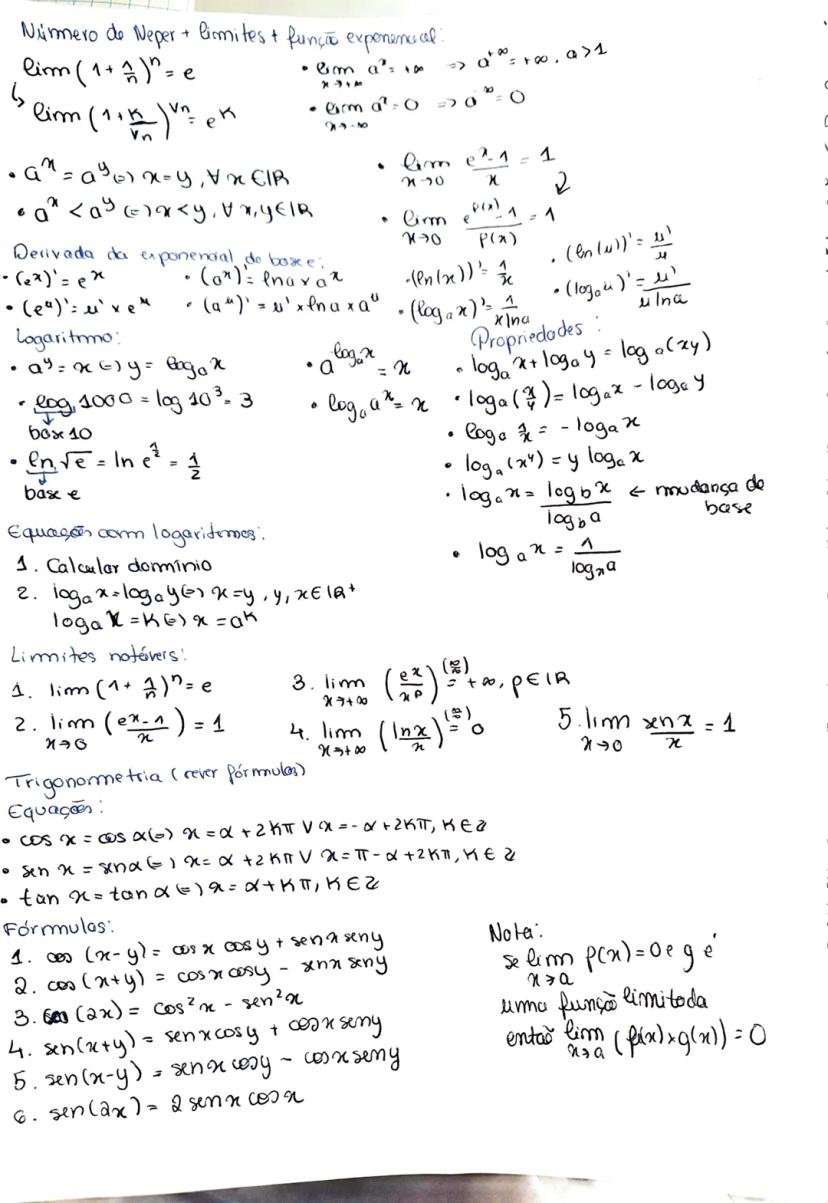 Número de Neper + limites + função exponencial:
lim (1 + 1/n)^n = e
• lim x→+∞ a^x = +∞ => a^+∞ = +∞, a>1
↳ lim (1 + K/Vn)^Vn = e^K
• lim x→-∞ a^x = 0 => a^-∞ = 0
• a^x = a^y (=) x = y, ∀ x ∈ IR
• lim x→0 (e^x - 1)/x = 1
• a^x < a^y (=) x < y, ∀ x, y ∈ IR
• lim x→0 (e^P(x) - 1)/P(x) = 1
Derivada da exponencial de base e:
• (e^x)' = e^x
• (a^x)' = ln a × a^x
• (ln(x))' = 1/x
• (ln(u))' = u'/u
• (e^u)' = u' × e^u
• (a^u)' = u' × ln a × a^u
• (log_a x)' = 1/(x ln a)
• (log_a u)' = u'/(u ln a)
Logaritmo:
• a^y = x (=) y = log_a x
• a^(log_a x) = x
• log 1000 = log 10^3 = 3
base 10
• log_a a^x = x
• ln √e = ln e^(1/2) = 1/2
base e
Propriedades:
• log_a x + log_a y = log_a (xy)
• log_a (x/y) = log_a x - log_a y
• log_a 1/x = - log_a x
• log_a (x^y) = y log_a x
• log_a x = log_b x / log_b a ← mudança de
base
• log_a x = 1/log_x a
Equações com logaritmos:
1. Calcular domínio
2. log_a x = log_a y (=) x = y, y, x ∈ IR+
log_a x = K (=) x = a^K
Limites notáveis:
1. lim (1 + 1/n)^n = e
2. lim x→0 ((e^x - 1)/x) = 1
3. lim x→+∞ (e^x/x^p) (∞/∞) = +∞, p ∈ IR
4. lim x→+∞ (ln x/x) (∞/∞) = 0
5. lim x→0 sen x/x = 1
Trigonometria (rever fórmulas)
Equações:
• cos x = cos α (=) x = α + 2Kπ V x = -α + 2Kπ, K ∈ Z
• sen x = sen α (=) x = α + 2Kπ V x = π - α + 2Kπ, K ∈ Z
• tan x = tan α (=) x = α + Kπ, K ∈ Z
Fórmulas:
1. cos (x-y) = cos x cos y + sen x sen y
2. cos (x+y) = cos x cos y - sen x sen y
3. cos (2x) = cos²x - sen²x
4. sen(x+y) = sen x cos y + cos x sen y
5. sen(x-y) = sen x cos y - cos x sen y
6. sen(2x) = 2 sen x cos x
Nota:
se lim x→a f(x) = 0 e g é
uma função limitada
então lim x→a (f(x) × g(x)) = 0